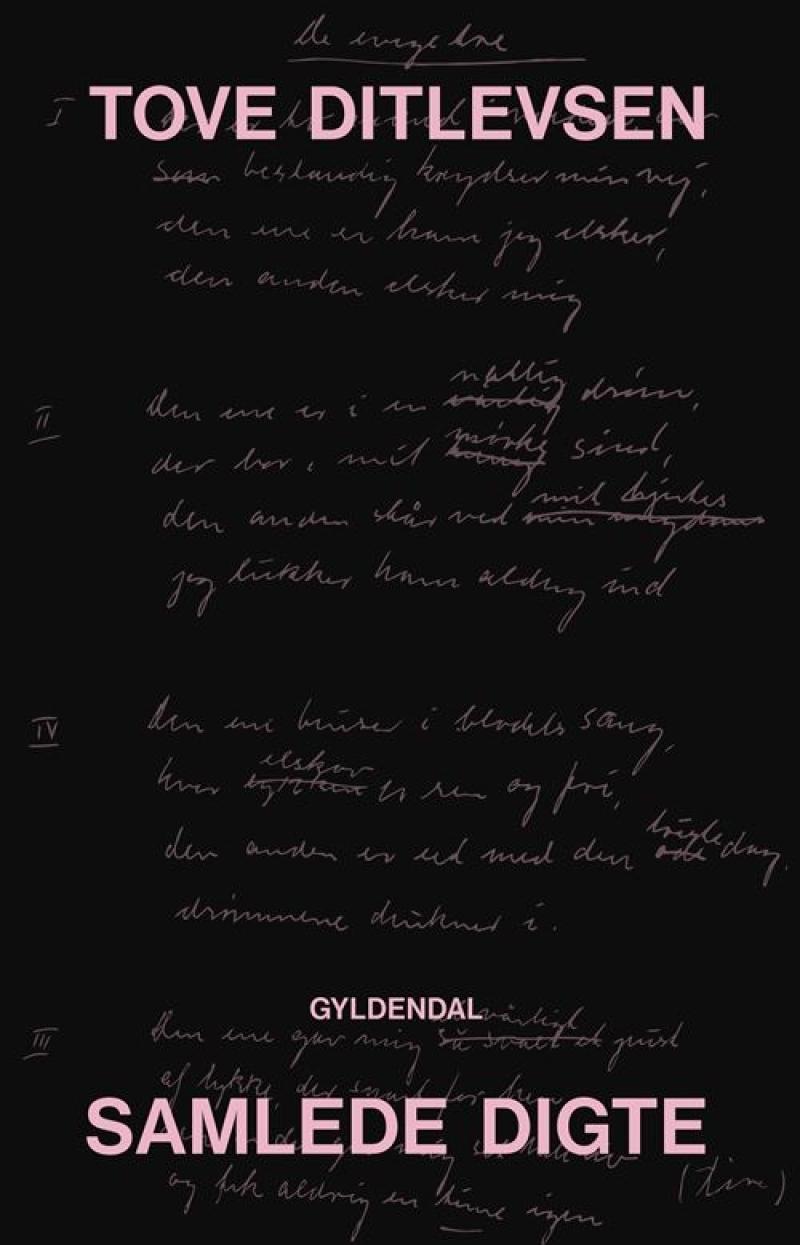 De evige tre
TOVE DITLEVSEN
I
som bestandig krydser min vej,
den ene er ham jeg elsker,
den anden elsker mig
II
nattlig
Den ene er i en drøm,
mørke
der bor i mit sind,
mit hjertes
den anden står ved
jeg lukker ham aldrig ind
IV
Den ene bruser i blodets sang,
elskov
hvor er ren og fri,
den anden er ét med den dag,
drømmene drukner i.
GYLDENDAL
III
Den ene gav mig så svalt et pust
af lykke, der svandt for
SAMLEDE DIGTE
og fik aldrig en time igen